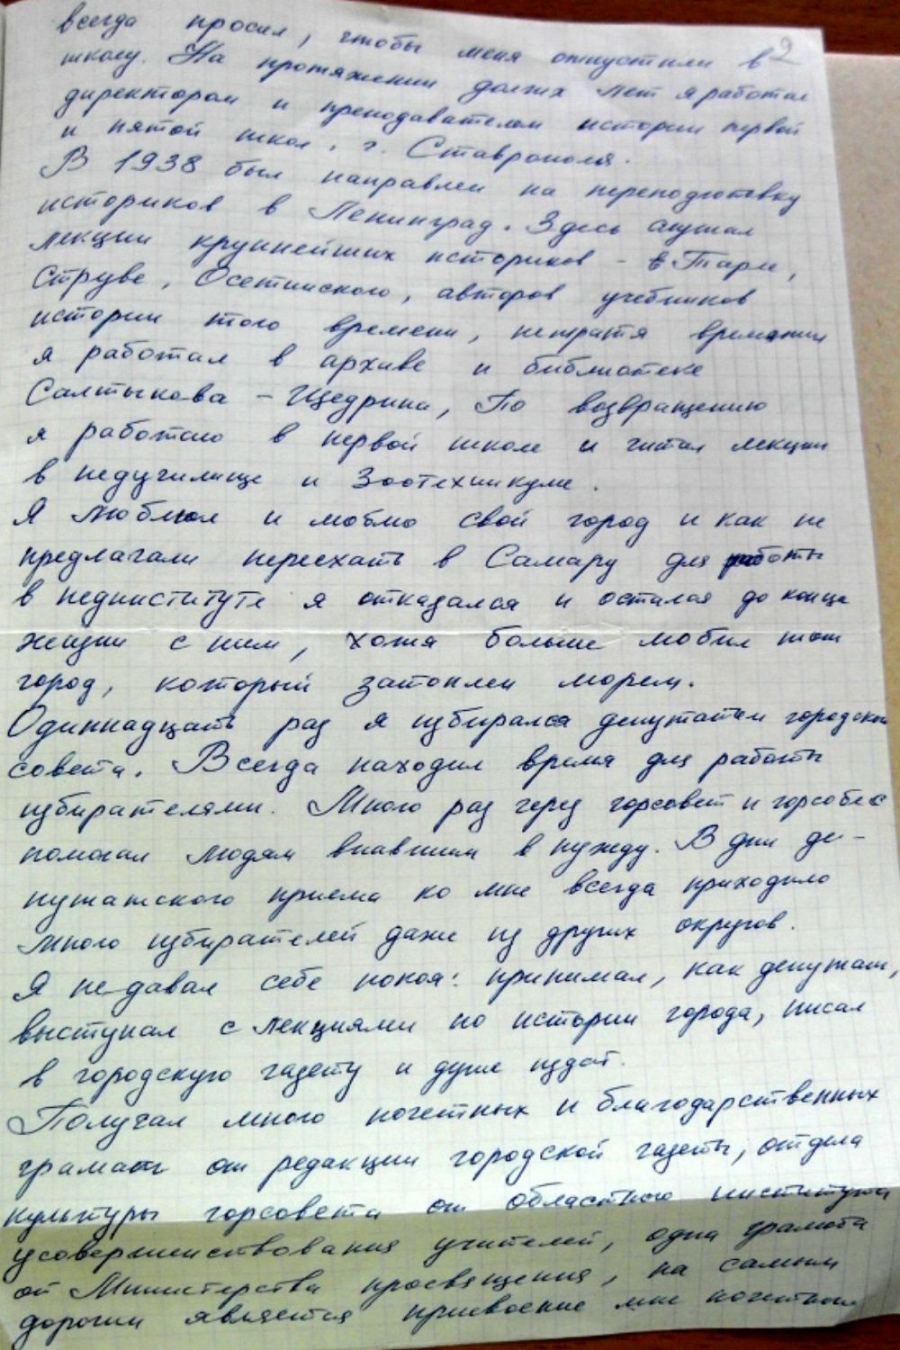 2
всегда просил, чтобы меня отпустили в
школу. На протяжении долгих лет я работал
директором и преподавателем истории первой
и пятой школ. г. Ставрополя.
В 1938 был направлен на переподготовку
историков в Ленинград. Здесь слушал
лекции крупнейших историков - Тарле,
Струве, Осетинского, авторов учебников
истории того времени, не тратя времени
я работал в архиве и библиотеке
Салтыкова - Щедрина, По возвращению
я работаю в первой школе и читал лекции
в педучилище и Зоотехникуме.
Я любил и люблю свой город и как не
предлагали переехать в Самару для работы
в пединституте я отказался и остался до конца
жизни с ним, хотя больше любил тот
город, который затоплен морем.
Одиннадцать раз я избирался депутатом городского
совета. Всегда находил время для работы
избирателями. Много раз через горсовет и горсобес
помогал людям впавшим в нужду. В дни де-
путатского приема ко мне всегда приходило
много избирателей даже из других округов.
Я не давал себе покоя: принимал, как депутат,
выступал с лекциями по истории города, писал
в городскую газету и
Получал много почетных и благодарственных
грамот от редакции городской газеты, отдела
культуры горсовета от областного института
усовершенствования учителей, одна грамота
от Министерства просвящения, на самым
дорогим является присвоение мне почетного